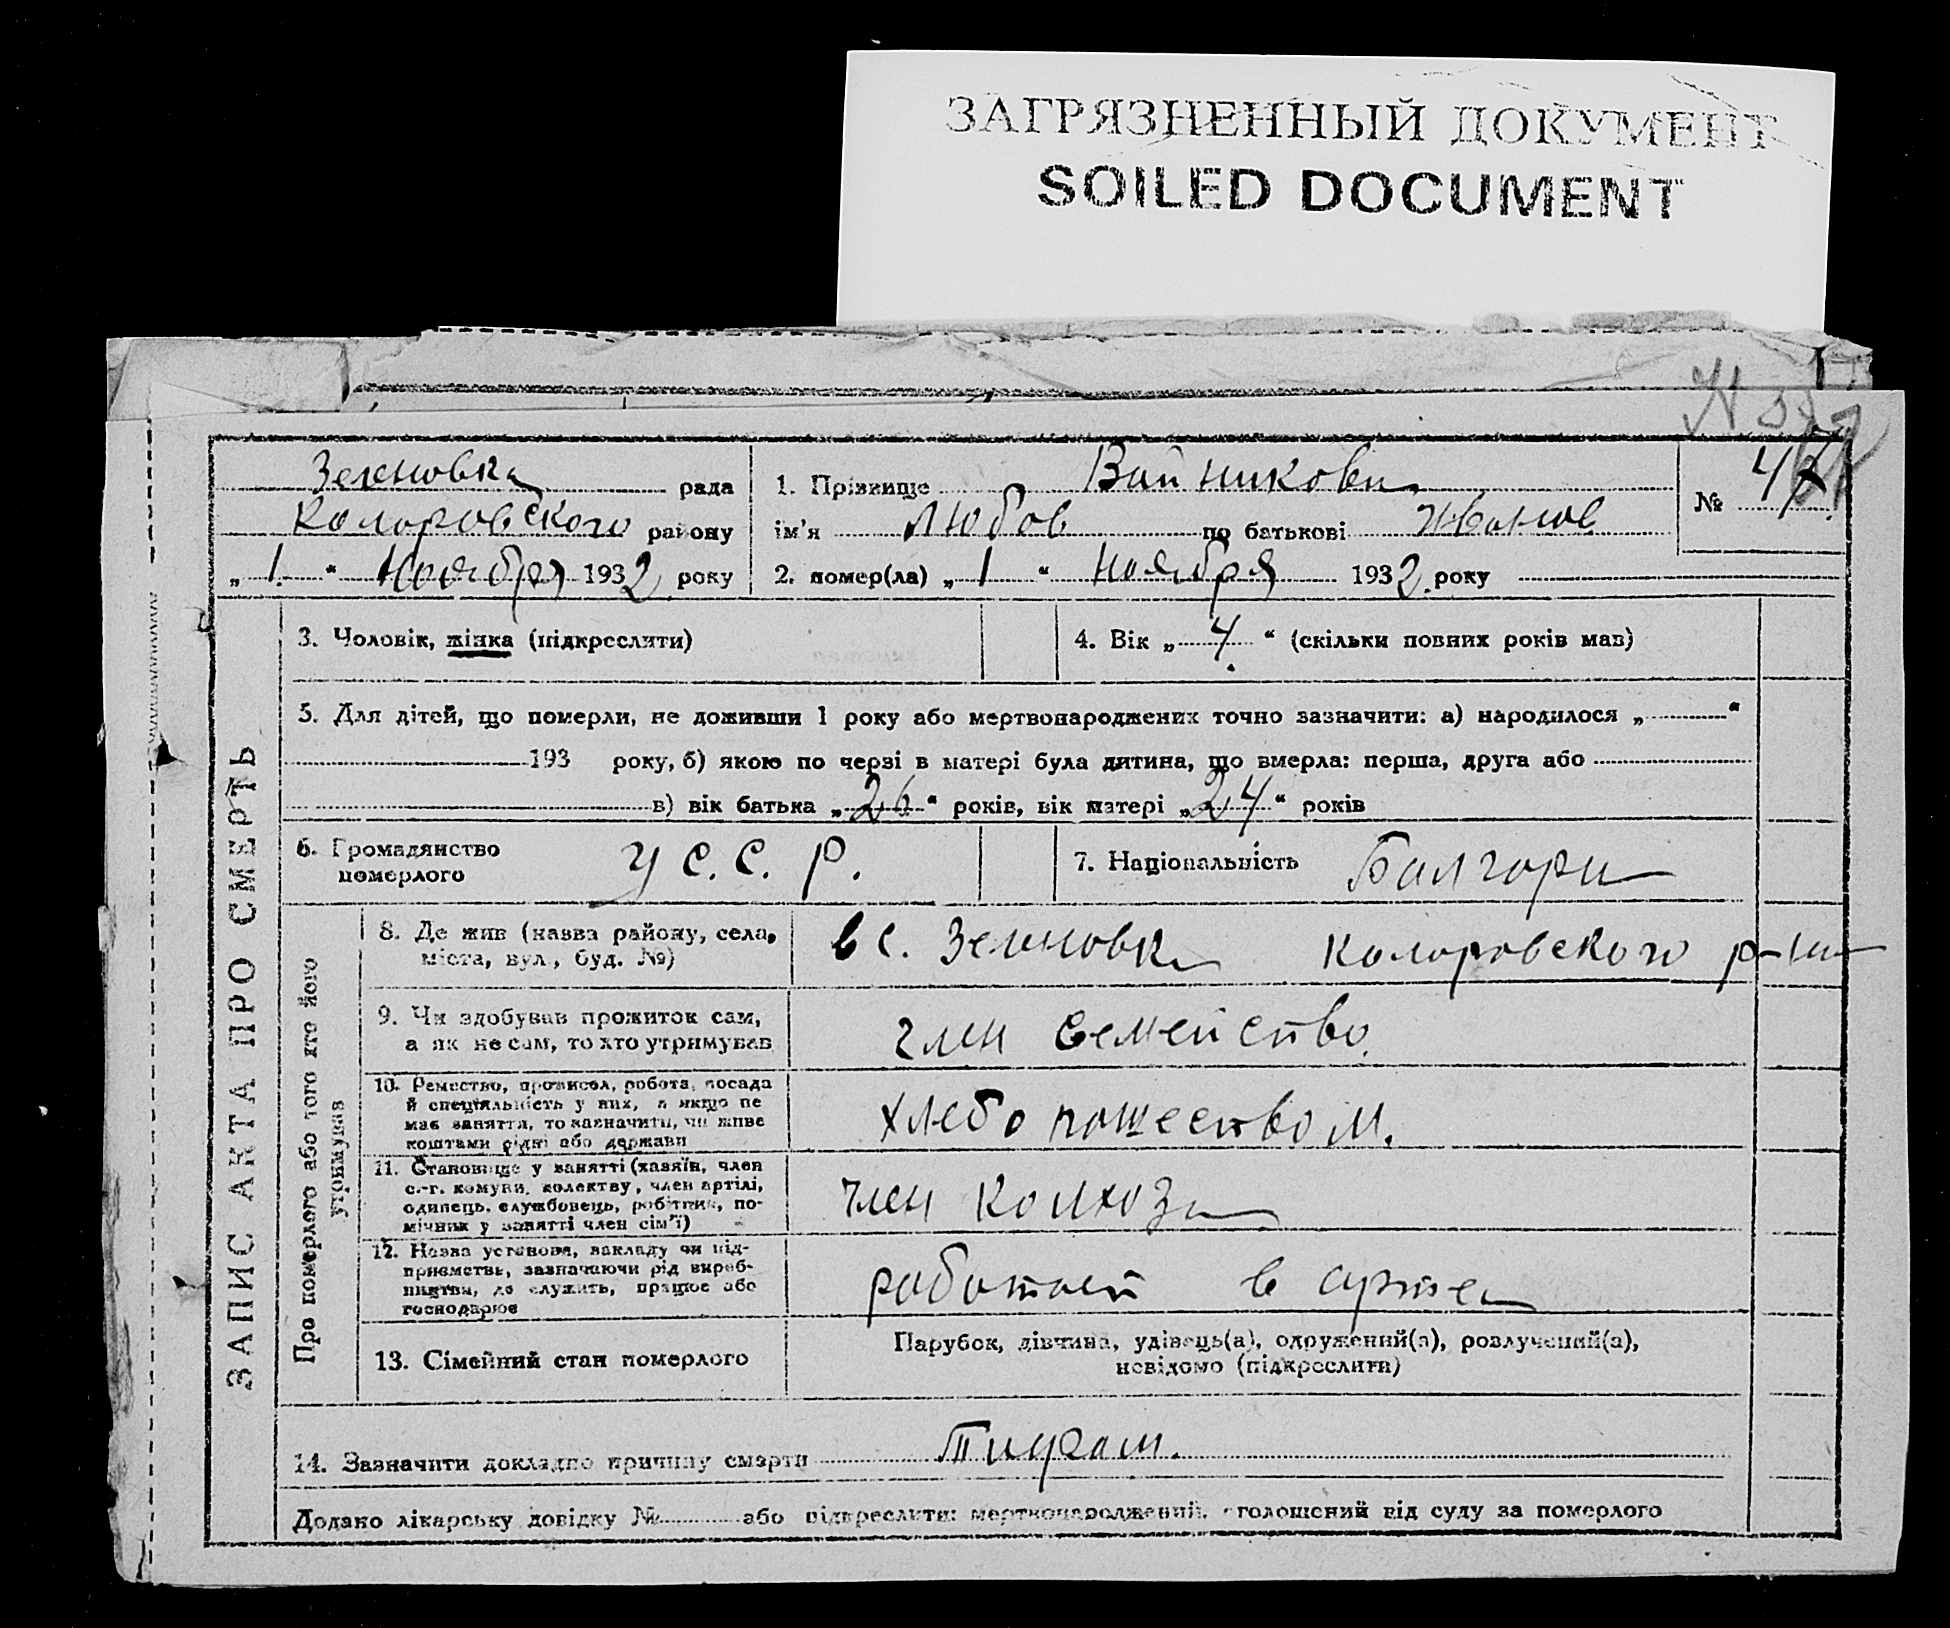 ЗАГРЯЗНЕННЫЙ ДОКУМЕНТ
SOILED DOCUMENT
Зеленовка рада
Коларовского району
„ 1 “ Ноября 1932 року
1. Прізвище Вайникова
ім'я Любов по батькові Иванов
2. помер(ла) „ 1 “ ноября 1932 року
№ 47
ЗАПИС АКТА ПРО СМЕРТЬ
3. Чоловік, жінка (підкреслити)
4. Вік „ 4 “ (скільки повних років мав)
5. Для дітей, що померли, не доживши 1 року або мертвонароджених точно зазначити: а) народилося „ “
193 року, б) якою по черзі в матері була дитина, що вмерла: перша, друга або
в) вік батька „ 26 “ років, вік матері „ 24 “ років
6. Громадянство
померлого
У С. С. Р.
7. Національність Болгари
Про померлого або того хто його
утримував
8. Де жив (назва району, села,
міста, вул., буд. №)
в с. Зеленовка Коларовского р-на
9. Чи здобував прожиток сам,
а як не сам, то хто утримував
член семейство
10. Ремество, промисел, робота, посада
й спеціяльність у них, а якщо не
має заняття, то зазначити, чи живе
коштами рідні або держави
хлебопашеством.
11. Становище у занятті (хазяїн, член
с.-г. комуни, колектву, член артілі,
одинець, службовець, робітник, по-
мічник у занятті член сім'ї)
член колхоза
12. Назва установи, закладу чи під-
приємства, зазначаючи рід вироб-
ництва, де служить, працює або
господарює
работает в артеле
13. Сімейний стан померлого
Парубок, дівчина, удівець(а), одружений(а), розлучений(а),
невідомо (підкреслити)
14. Зазначити докладно причину смерти
Додано лікарську довідку № або підкреслити: мертвонароджений, оголошений від суду за померлого